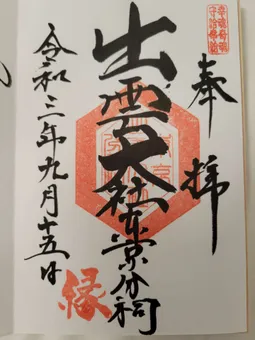 奉拝
出雲大社東京分祠
縁
令和三年九月十五日